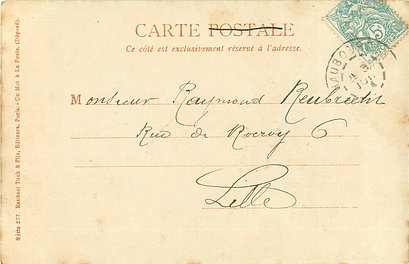 CARTE POSTALE
Ce côté est exclusivement réservé à l'adresse.
Monsieur Raymond Reubrecht
Rue de Rocroy 6
Lille
Série 277. Raphael Tuck & Fils, Editeurs, Paris. Un Mot à La Poste. (Déposé).
5